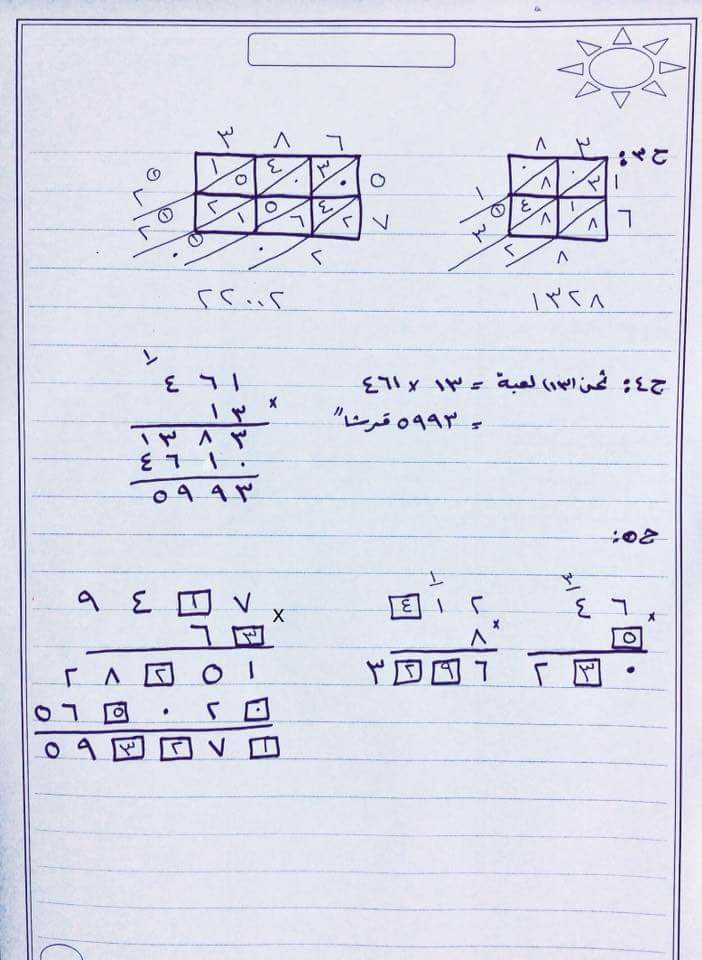 ج٣:
٨ ٣
٠ ٨ ٠ ٣ ١
٤ ٨ ١ ٨ ٦
١
٣ ١
٢ ٨
١٣٢٨
٣ ٨ ٦
١ ٥ ٤ ٠ ٣ ٠ ٥
٢ ١ ٥ ٦ ٤ ٢ ٧
٢ ١
٢ ١
٠ ١ ٠ ٢
٢٢٠٠٢
ج٤: ثمن (١٣) لعبة = ١٣ × ٤٦١
= ٥٩٩٣ قرشاً
١
٤ ٦ ١
١ ٣ ×
١ ٣ ٨ ٣
٤ ٦ ١ ٠
٥ ٩ ٩ ٣
ج٥:
٣
٤ ٦
٥ ×
٢ ٣ ٠
١
٤ ١ ٢
٨ ×
٣ ٢ ٩ ٦
٩ ٤ ١ ٧
٦ ٣ ×
٢ ٨ ٢ ٥ ١
٥ ٦ ٥ ٠ ٢ ٠
٥ ٩ ٣ ٢ ٧ ١